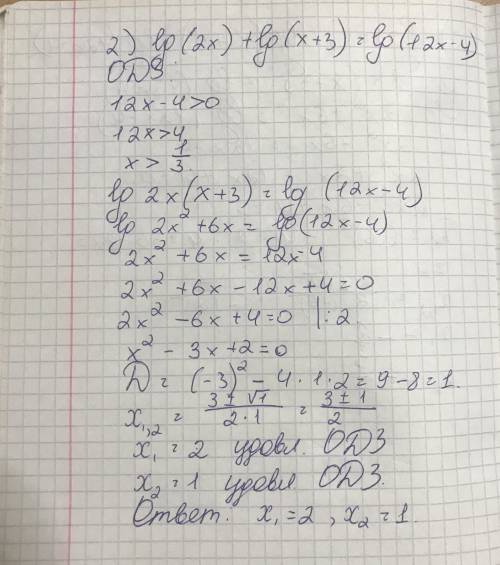 2) lg(2x) + lg(x+3) = lg(12x-4)
ОДЗ:
12x-4>0
12x>4
x > 1/3.
lg 2x(x+3) = lg (12x-4)
lg 2x² + 6x = lg(12x-4)
2x² + 6x = 12x-4
2x² + 6x - 12x + 4 = 0
2x² - 6x + 4 = 0 |:2
x² - 3x + 2 = 0
D = (-3)² - 4·1·2 = 9-8 = 1.
x₁,₂ = (3 ± √1)/(2·1) = (3 ± 1)/2
x₁ = 2 удовл. ОДЗ
x₂ = 1 удовл ОДЗ.
Ответ. x₁ = 2, x₂ = 1.